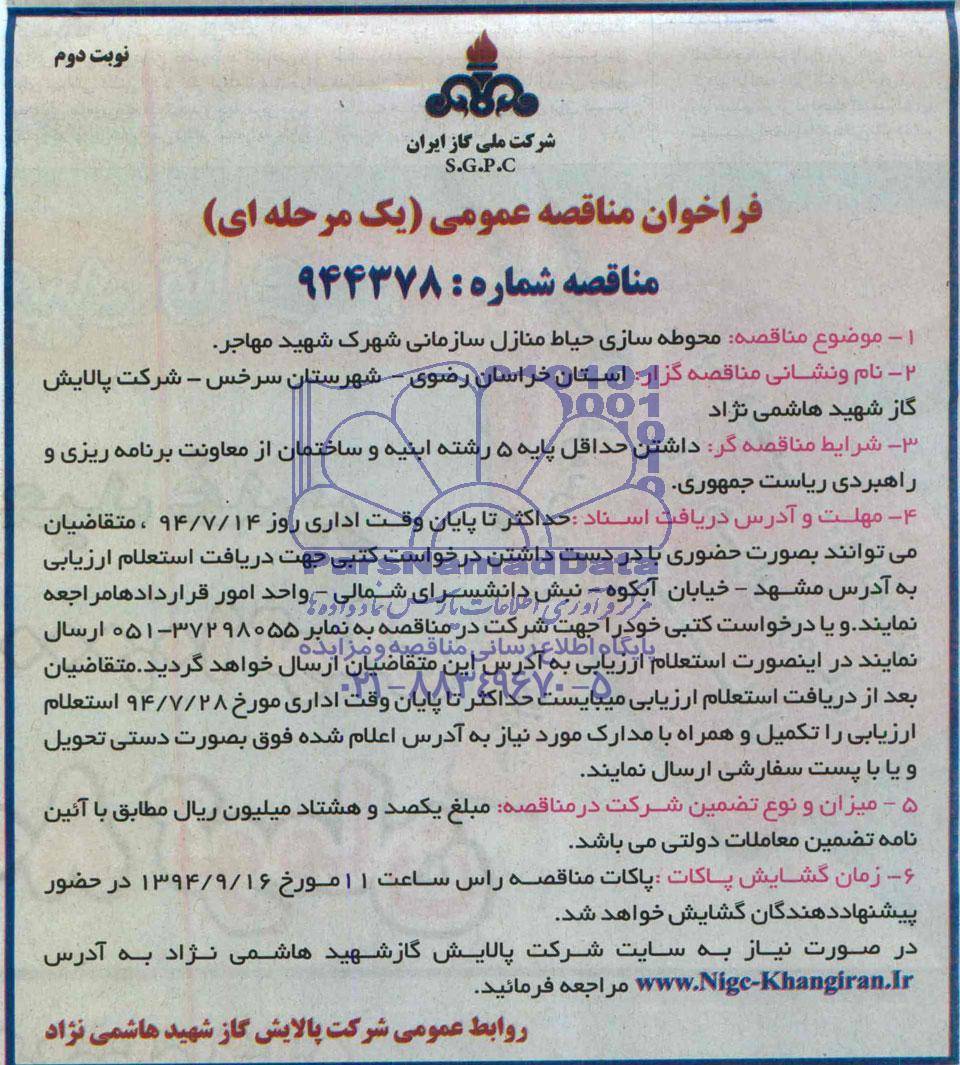 نوبت دوم
شرکت ملی گاز ایران
S.G.P.C
فراخوان مناقصه عمومی (یک مرحله ای)
مناقصه شماره : ۹۴۴۳۷۸
۱- موضوع مناقصه: محوطه سازی حیاط منازل سازمانی شهرک شهید مهاجر.
۲- نام ونشانی مناقصه گزار: استان خراسان رضوی - شهرستان سرخس - شرکت پالایش
گاز شهید هاشمی نژاد
۳- شرایط مناقصه گر: داشتن حداقل پایه ۵ رشته ابنیه و ساختمان از معاونت برنامه ریزی و
راهبردی ریاست جمهوری.
۴- مهلت و آدرس دریافت اسناد :حداکثر تا پایان وقت اداری روز ۹۴/۷/۱۴ ، متقاضیان
می توانند بصورت حضوری با در دست داشتن درخواست کتبی جهت دریافت استعلام ارزیابی
به آدرس مشهد - خیابان آبکوه - نبش دانشسرای شمالی - واحد امور قراردادهامراجعه
نمایند.و یا درخواست کتبی خودرا جهت شرکت در مناقصه به نمابر ۳۷۲۹۸۰۵۵-۰۵۱ ارسال
نمایند در اینصورت استعلام ارزیابی به آدرس این متقاضیان ارسال خواهد گردید.متقاضیان
بعد از دریافت استعلام ارزیابی میبایست حداکثر تا پایان وقت اداری مورخ ۹۴/۷/۲۸ استعلام
ارزیابی را تکمیل و همراه با مدارک مورد نیاز به آدرس اعلام شده فوق بصورت دستی تحویل
و یا با پست سفارشی ارسال نمایند.
۵ - میزان و نوع تضمین شرکت درمناقصه: مبلغ یکصد و هشتاد میلیون ریال مطابق با آئین
نامه تضمین معاملات دولتی می باشد.
۶- زمان گشایش پاکات :پاکات مناقصه راس ساعت ۱۱مورخ ۱۳۹۴/۹/۱۶ در حضور
پیشنهاددهندگان گشایش خواهد شد.
در صورت نیاز به سایت شرکت پالایش گازشهید هاشمی نژاد به آدرس
www.Nigc-Khangiran.Ir مراجعه فرمائید.
روابط عمومی شرکت پالایش گاز شهید هاشمی نژاد
ParsNamadData
مرکز فرآوری اطلاعات پارس نماد داده ها
پایگاه اطلاع رسانی مناقصه و مزایده
۰۲۱-۸۸۳۴۹۶۷۰-۵